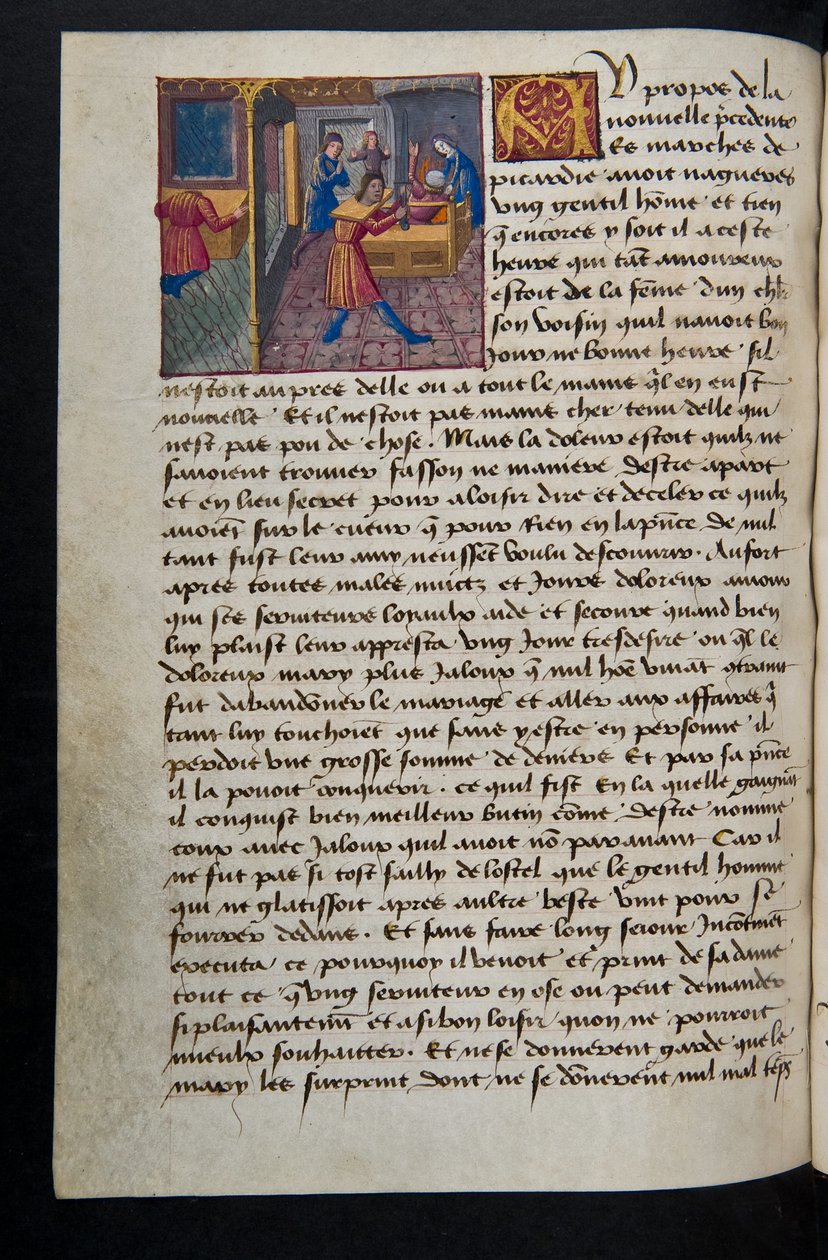 A propos de la
nouuelle p̃cedente
Es marches de
picardie auoit nagueres
vng gentil hõme et tien
q̃ encores y soit il a ceste
heure qui tãt amoureux
estoit de la fẽme dun chlr
son voisin quil nauoit bon
Jour ne bonne heure sil
nestoit au pres delle ou a tout le mains q̃l en eust
nouuelle Et il nestoit pas mains cher tenu delle qui
nest pas pou de chose. Mais la doleur estoit quilz ne
sauoient trouuer fasson ne maniere destre apart
et en lieu secret pour a loisir dire et deceler ce quilz
auoiẽt sur le cueur q̃ pour Rien en la pñce de nul
tant fust leur amy neussẽt voulu descouurir. Au fort
apres toutes males nuictz et Jours doloreux amour
qui ses seruiteurs loyaulx aide et secoure quand bien
luy plaist leur appresta vng Jour tresdesire ou q̃l le
doloreux mary plus Jaloux q̃ nul hõe viuãt 9traint
fut dabandõner le mariage et aller aux affaires q̃
tant luy touchoiẽt que sans y estre en personne il
perdoit vne grosse somme de deniers Et par sa pñce
il la pouoit conquerir. ce quil fist En la quelle gaignãt
il conquist bien meilleur butin cõme destre nomme
coux auec Jaloux quil auoit nõ parauant Car il
ne fut pas si tost sailly de lostel que le gentil homme
qui ne glatissoit apres aultre beste vint pour se
fourrer dedans. Et sans faire long seiour Incõtinẽt
executa ce pourquoy il venoit et print de sa dame
tout ce q̃ vng seruiteur en ose ou peut demander
si plaisantemẽt et a si bon loisir quon ne pourroit
mieulx souhaitter. Et ne se donnerent garde que le
mary les surprint dont ne se dõnerẽt nul mal tẽps